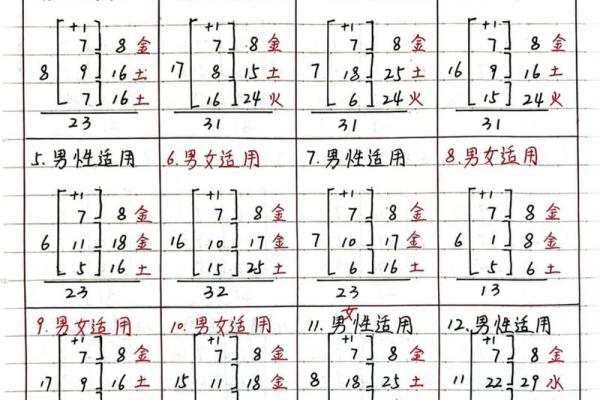 +1
7 8 金
8 9 16 土
7 16 土
23
+1
7 8 金
17 8 15 土
16 24 火
31
+1
7 8 金
7 18 25 土
6 24 火
31
+1
7 8 金
16 9 16 土
15 24 火
31
5.男性适用
+1
7 8 金
6 11 18 金
5 16 土
23
6.男女适用
+1
7 8 金
16 10 17 金
15 25 土
32
7.男性适用
+1
7 8 金
7 10 17 金
6 16 土
23
8.男女适用
+1
7 8 金
6 1 8 金
5 6 土
13
9.男女适用
+1
7 8 金
17 9 16 土
10.男女适用
+1
7 8 金
15 11 18 金
11.男女性适用
+1
7 8 金
8 18 25 土
12.男性适用
+1
7 8 金
11 22 29 水